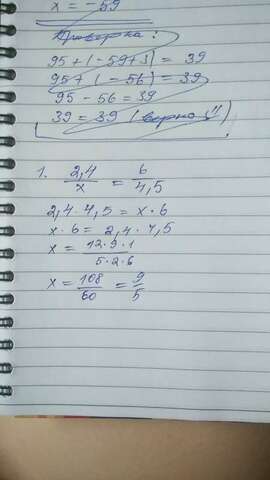 x = -59
Проверка:
95 + (-59+3) = 39
95 + (-56) = 39
95 - 56 = 39
39 = 39 (верно!!)
1. 2,4/x = 6/4,5
2,4 · 4,5 = x · 6
x · 6 = 2,4 · 4,5
x = 12·9·1/5·2·6
x = 108/60 = 9/5